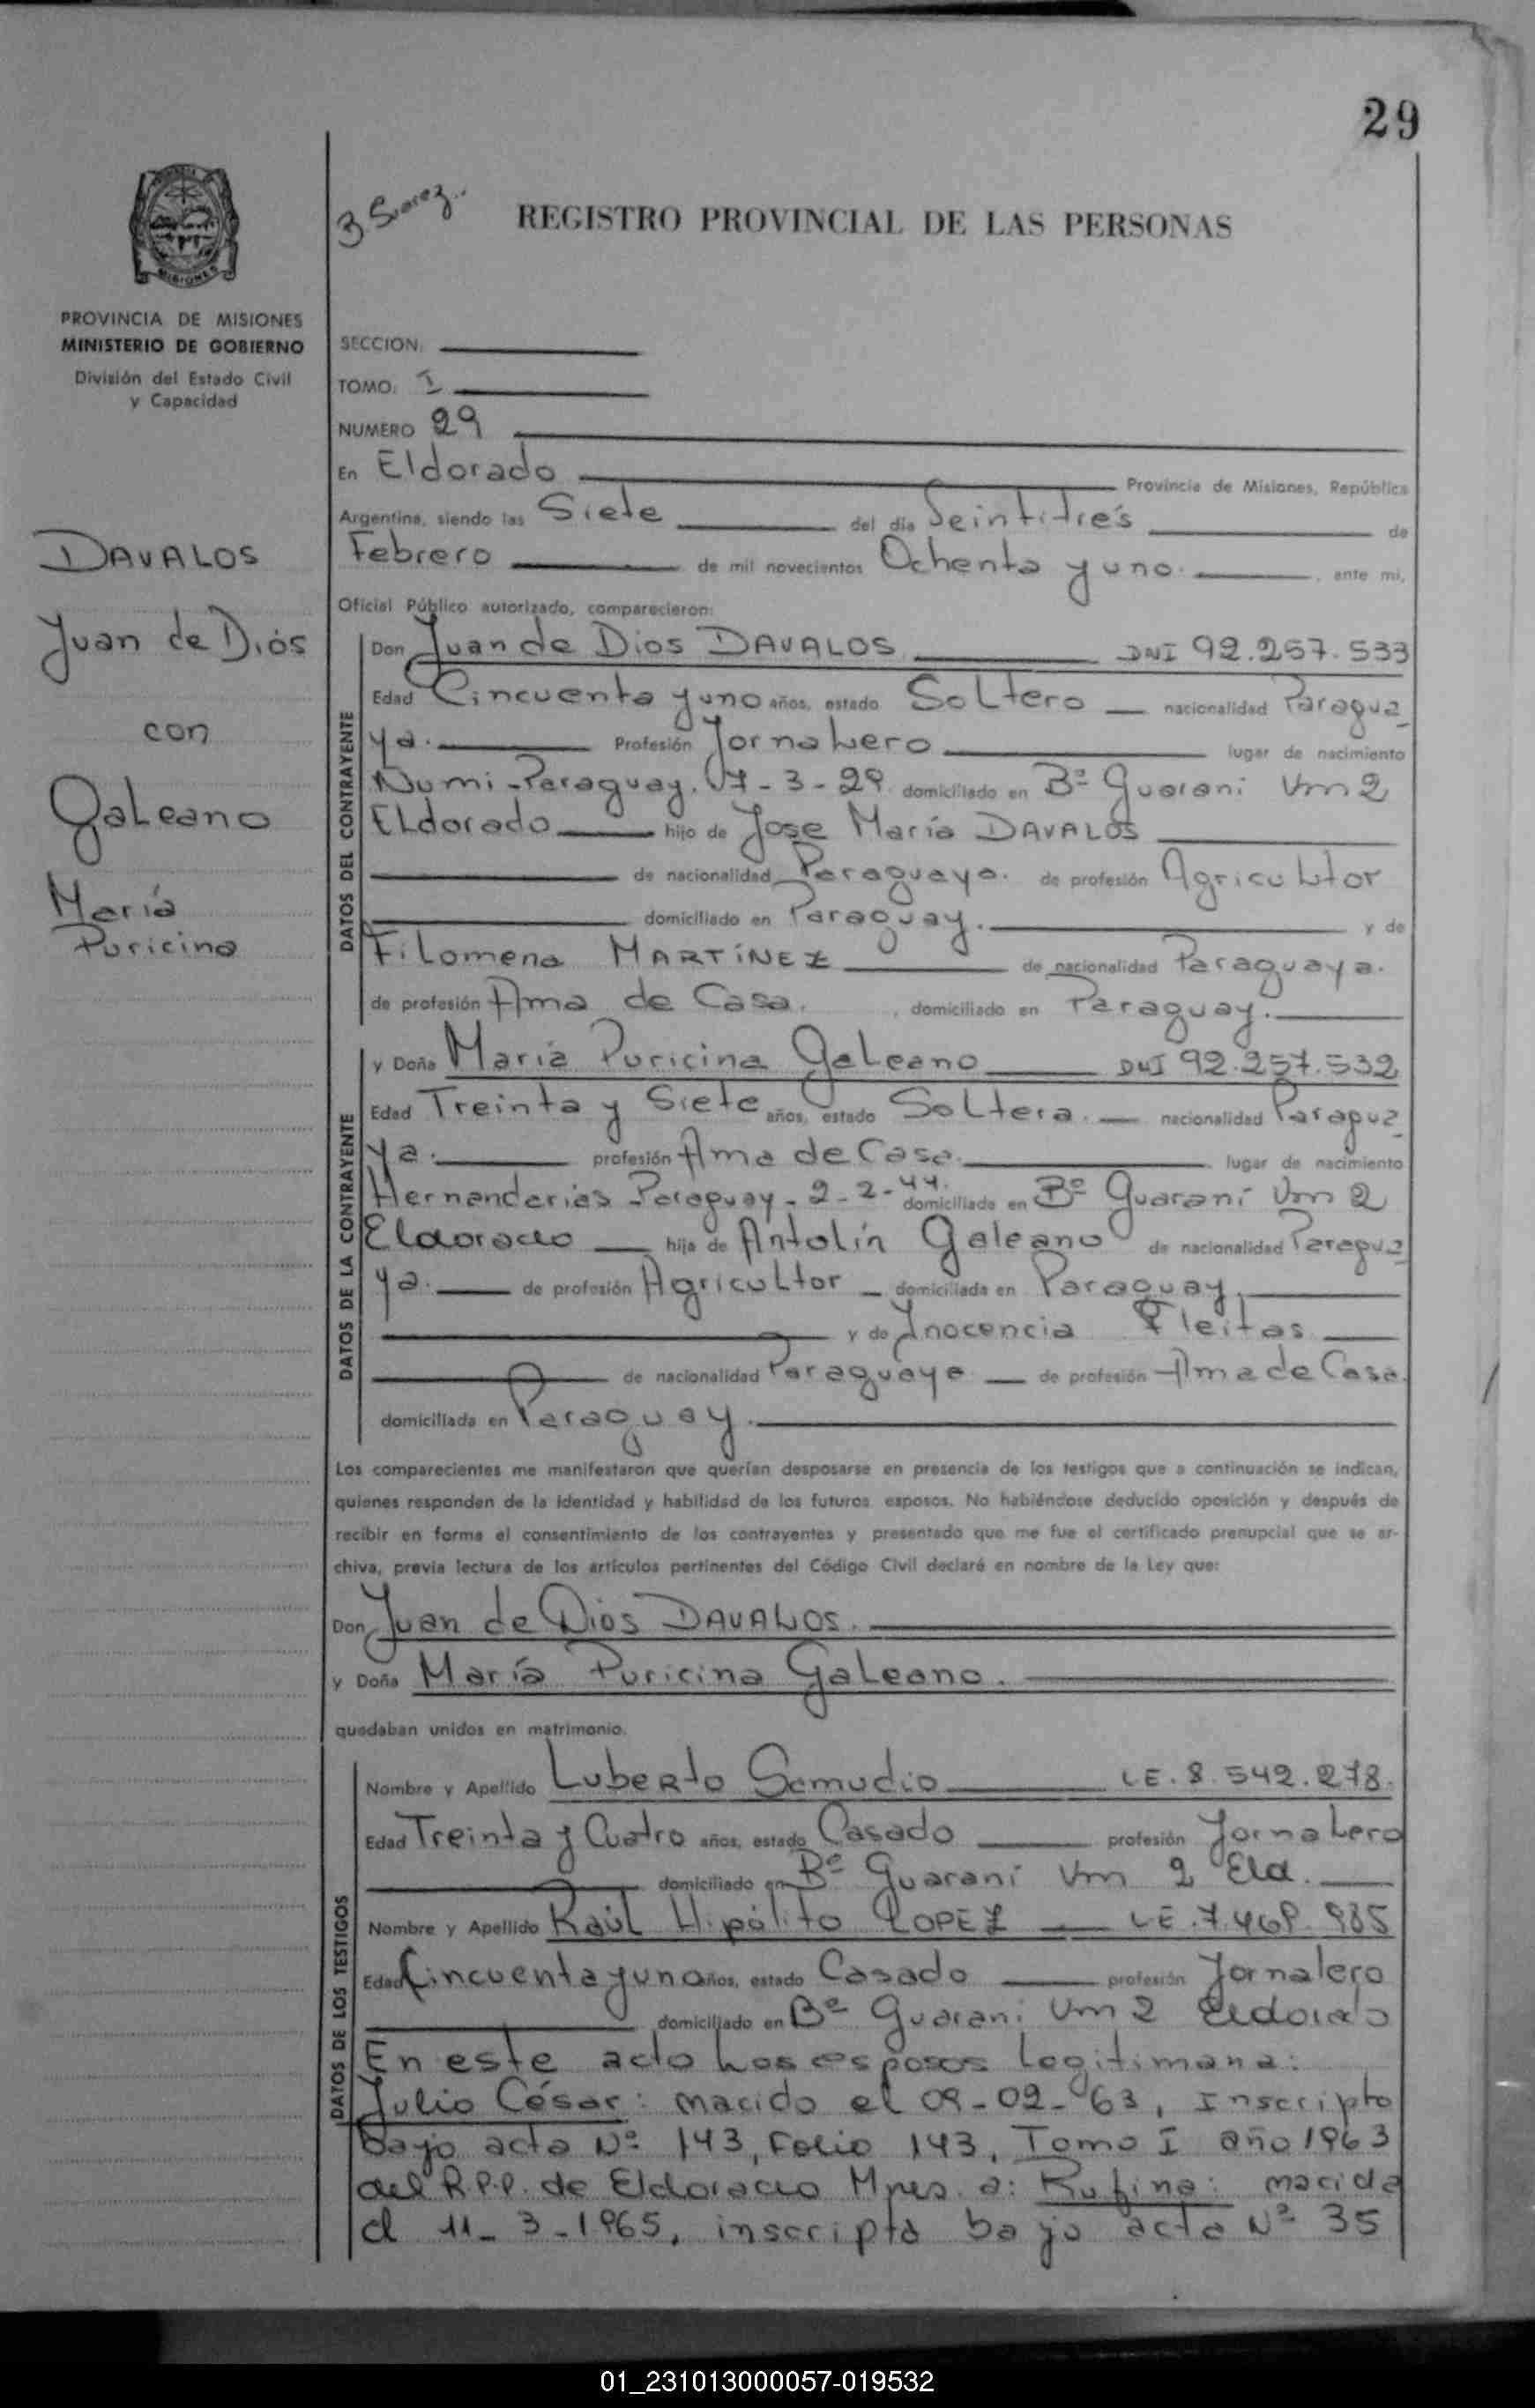 29
3 Suarez..
REGISTRO PROVINCIAL DE LAS PERSONAS
MISIONES
PROVINCIA DE MISIONES
MINISTERIO DE GOBIERNO
División del Estado Civil
y Capacidad
DAVALOS
Juan de Diós
con
Galeano
María
Puricina
SECCION:
TOMO: I
NUMERO 29
En Eldorado Provincia de Misiones, República
Argentina, siendo las Siete del día Veintitrés de
Febrero de mil novecientos Ochenta y uno. , ante mi,
Oficial Público autorizado, comparecieron:
DATOS DEL CONTRAYENTE
Don Juan de Dios DAVALOS DNI 92.257.533
Edad Cincuenta y uno años, estado Soltero nacionalidad Paragua
ya. Profesión Jornalero lugar de nacimiento
Ñumi-Paraguay. 7-3-29 domiciliado en Bº Guarani Km 2
Eldorado hijo de Jose María DAVALOS
de nacionalidad Paraguaya. de profesión Agricultor
domiciliado en Paraguay. y de
Filomena MARTíNEZ de nacionalidad Paraguaya.
de profesión Ama de Casa. , domiciliado en Paraguay.
DATOS DE LA CONTRAYENTE
y Doña María Puricina Galeano DNI 92.257.532
Edad Treinta y Siete años, estado Soltera. nacionalidad Paragua
ya. profesión Ama de Casa. lugar de nacimiento
Hernanderias Paraguay - 2-2-44. domiciliada en Bº Guaraní Km 2
Eldorado hija de Antolín Galeano de nacionalidad Paragua
ya. de profesión Agricultor domiciliada en Paraguay.
y de Inocencia Fleitas
de nacionalidad Paraguaya de profesión Ama de Casa.
domiciliada en Paraguay.
Los comparecientes me manifestaron que querían desposarse en presencia de los testigos que a continuación se indican,
quienes responden de la identidad y habilidad de los futuros esposos. No habiéndose deducido oposición y después de
recibir en forma el consentimiento de los contrayentes y presentado que me fue el certificado prenupcial que se ar-
chiva, previa lectura de los artículos pertinentes del Código Civil declaré en nombre de la Ley que:
Don Juan de Dios DAVALOS.
y Doña María Puricina Galeano.
quedaban unidos en matrimonio.
DATOS DE LOS TESTIGOS
Nombre y Apellido Luberto Samudio LE. 8.542.278.
Edad Treinta y Cuatro años, estado Casado profesión Jornalero
domiciliado en Bº Guaraní Km 2 Eld.
Nombre y Apellido Raúl Hipólito LOPEZ LE. 7.469.985
Edad Cincuenta y uno años, estado Casado profesión Jornalero
domiciliado en Bº Guarani Km 2 Eldorado
En este acto los esposos legitiman a:
Julio César: nacido el 09-02-63, Inscripto
bajo acta Nº 143, Folio 143, Tomo I año 1963
del R.P.P. de Eldorado Mnes. a: Rufina: nacida
el 11-3-1965, inscripta bajo acta Nº 35
01_231013000057-019532